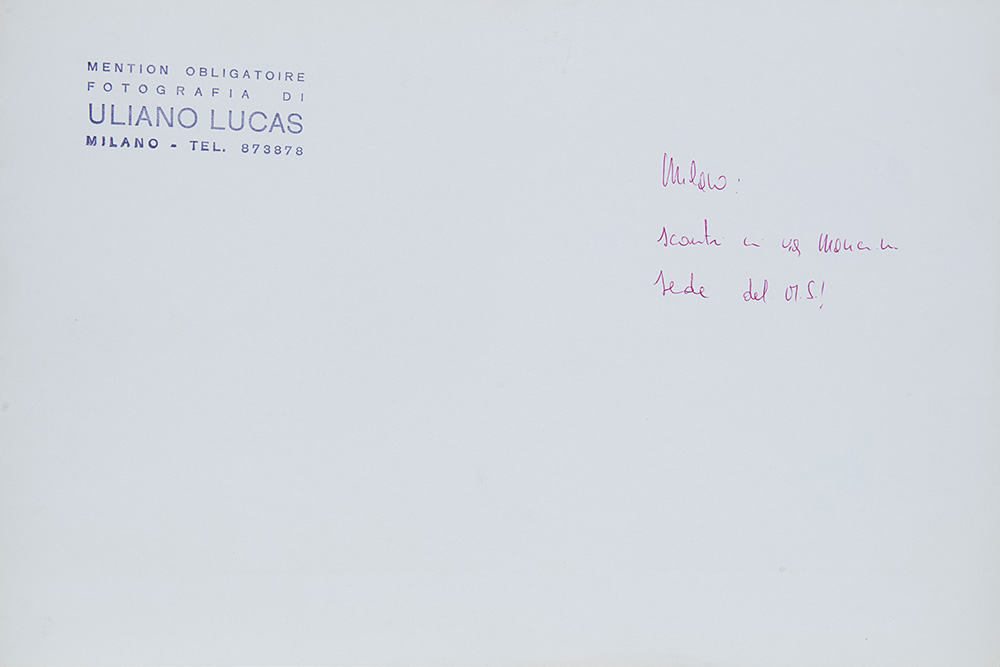 MENTION OBLIGATOIRE
FOTOGRAFIA DI
ULIANO LUCAS
MILANO - TEL. 873878
Milano:
scontri in via Mancini
sede del M.S.!